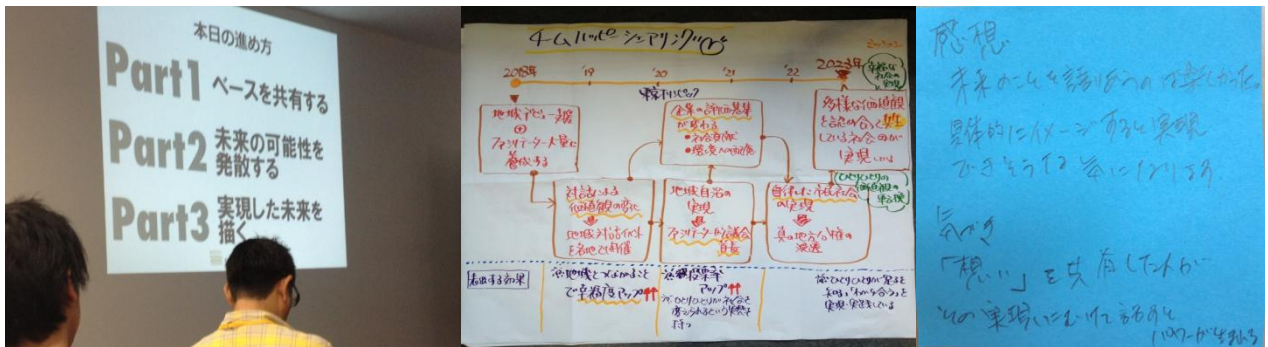 本日の進め方
Part1 ベースを共有する
Part2 未来の可能性を
発散する
Part3 実現した未来を
描く
チームハッピーシェアリング
2018年 '19 '20 '21 '22 2023年
東京オリンピック
地域デビュー支援
ファシリテーター大量に
養成する
企業の評価基準
が変わる
•社会貢献
•環境への配慮
多様な価値観
を認め合って共生
している社会が
実現している
対話による
価値観の変化
地域対話イベント
を各地で開催
地域自治の
実現
ファシリテーターが議会
自律した市民社会
の実現
真の地方分権の
浸透
ひとりひとりの
地域とつながること
で幸福度アップ
投票率
アップ
ひとりひとりが社会を
変えられるという実感を
持つ
感想
未来のことを語りあうのは楽しかった。
具体的にイメージすると実現
できそうな気になります。
気づき
「想い」を共有した人が
その実現にむけて話すと
パワーが生まれる